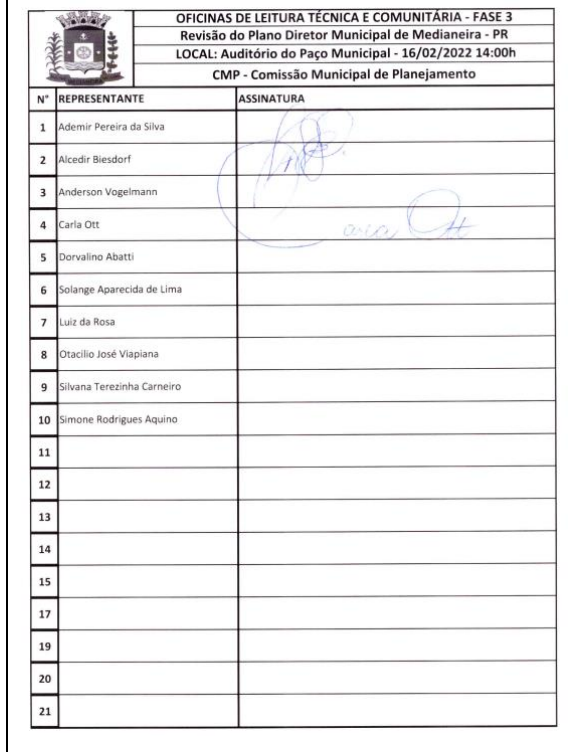 OFICINAS DE LEITURA TÉCNICA E COMUNITÁRIA - FASE 3
Revisão do Plano Diretor Municipal de Medianeira - PR
LOCAL: Auditório do Paço Municipal - 16/02/2022 14:00h
CMP - Comissão Municipal de Planejamento
N° REPRESENTANTE ASSINATURA
1 Ademir Pereira da Silva
2 Alcedir Biesdorf
3 Anderson Vogelmann
4 Carla Ott Carla Ott
5 Dorvalino Abatti
6 Solange Aparecida de Lima
7 Luiz da Rosa
8 Otacilio José Viapiana
9 Silvana Terezinha Carneiro
10 Simone Rodrigues Aquino
11
12
13
14
15
17
19
20
21